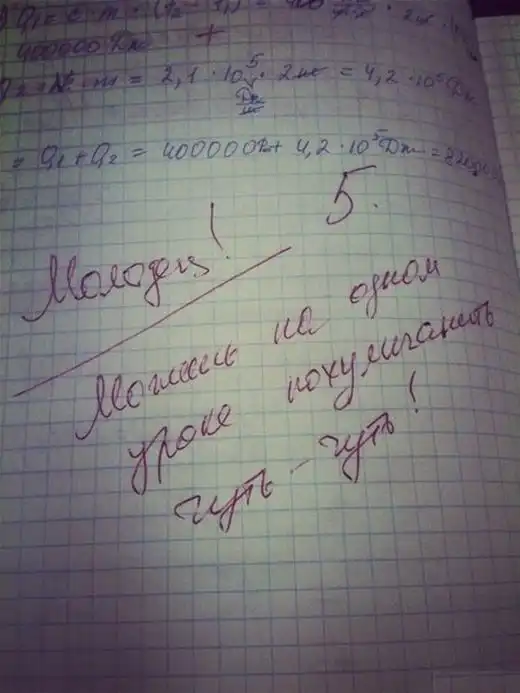 Q₁ = c · m · (t₂ - t₁) = 400 · 2кг
400000 Дж +
λ · m = 2,1 · 10⁵ Дж/кг · 2кг = 4,2 · 10⁵ Дж
= Q₁ + Q₂ = 400000Дж + 4,2 · 10⁵ Дж = 820000
5.
Молодец!
Можешь на одном
уроке похулиганить
чуть - чуть!